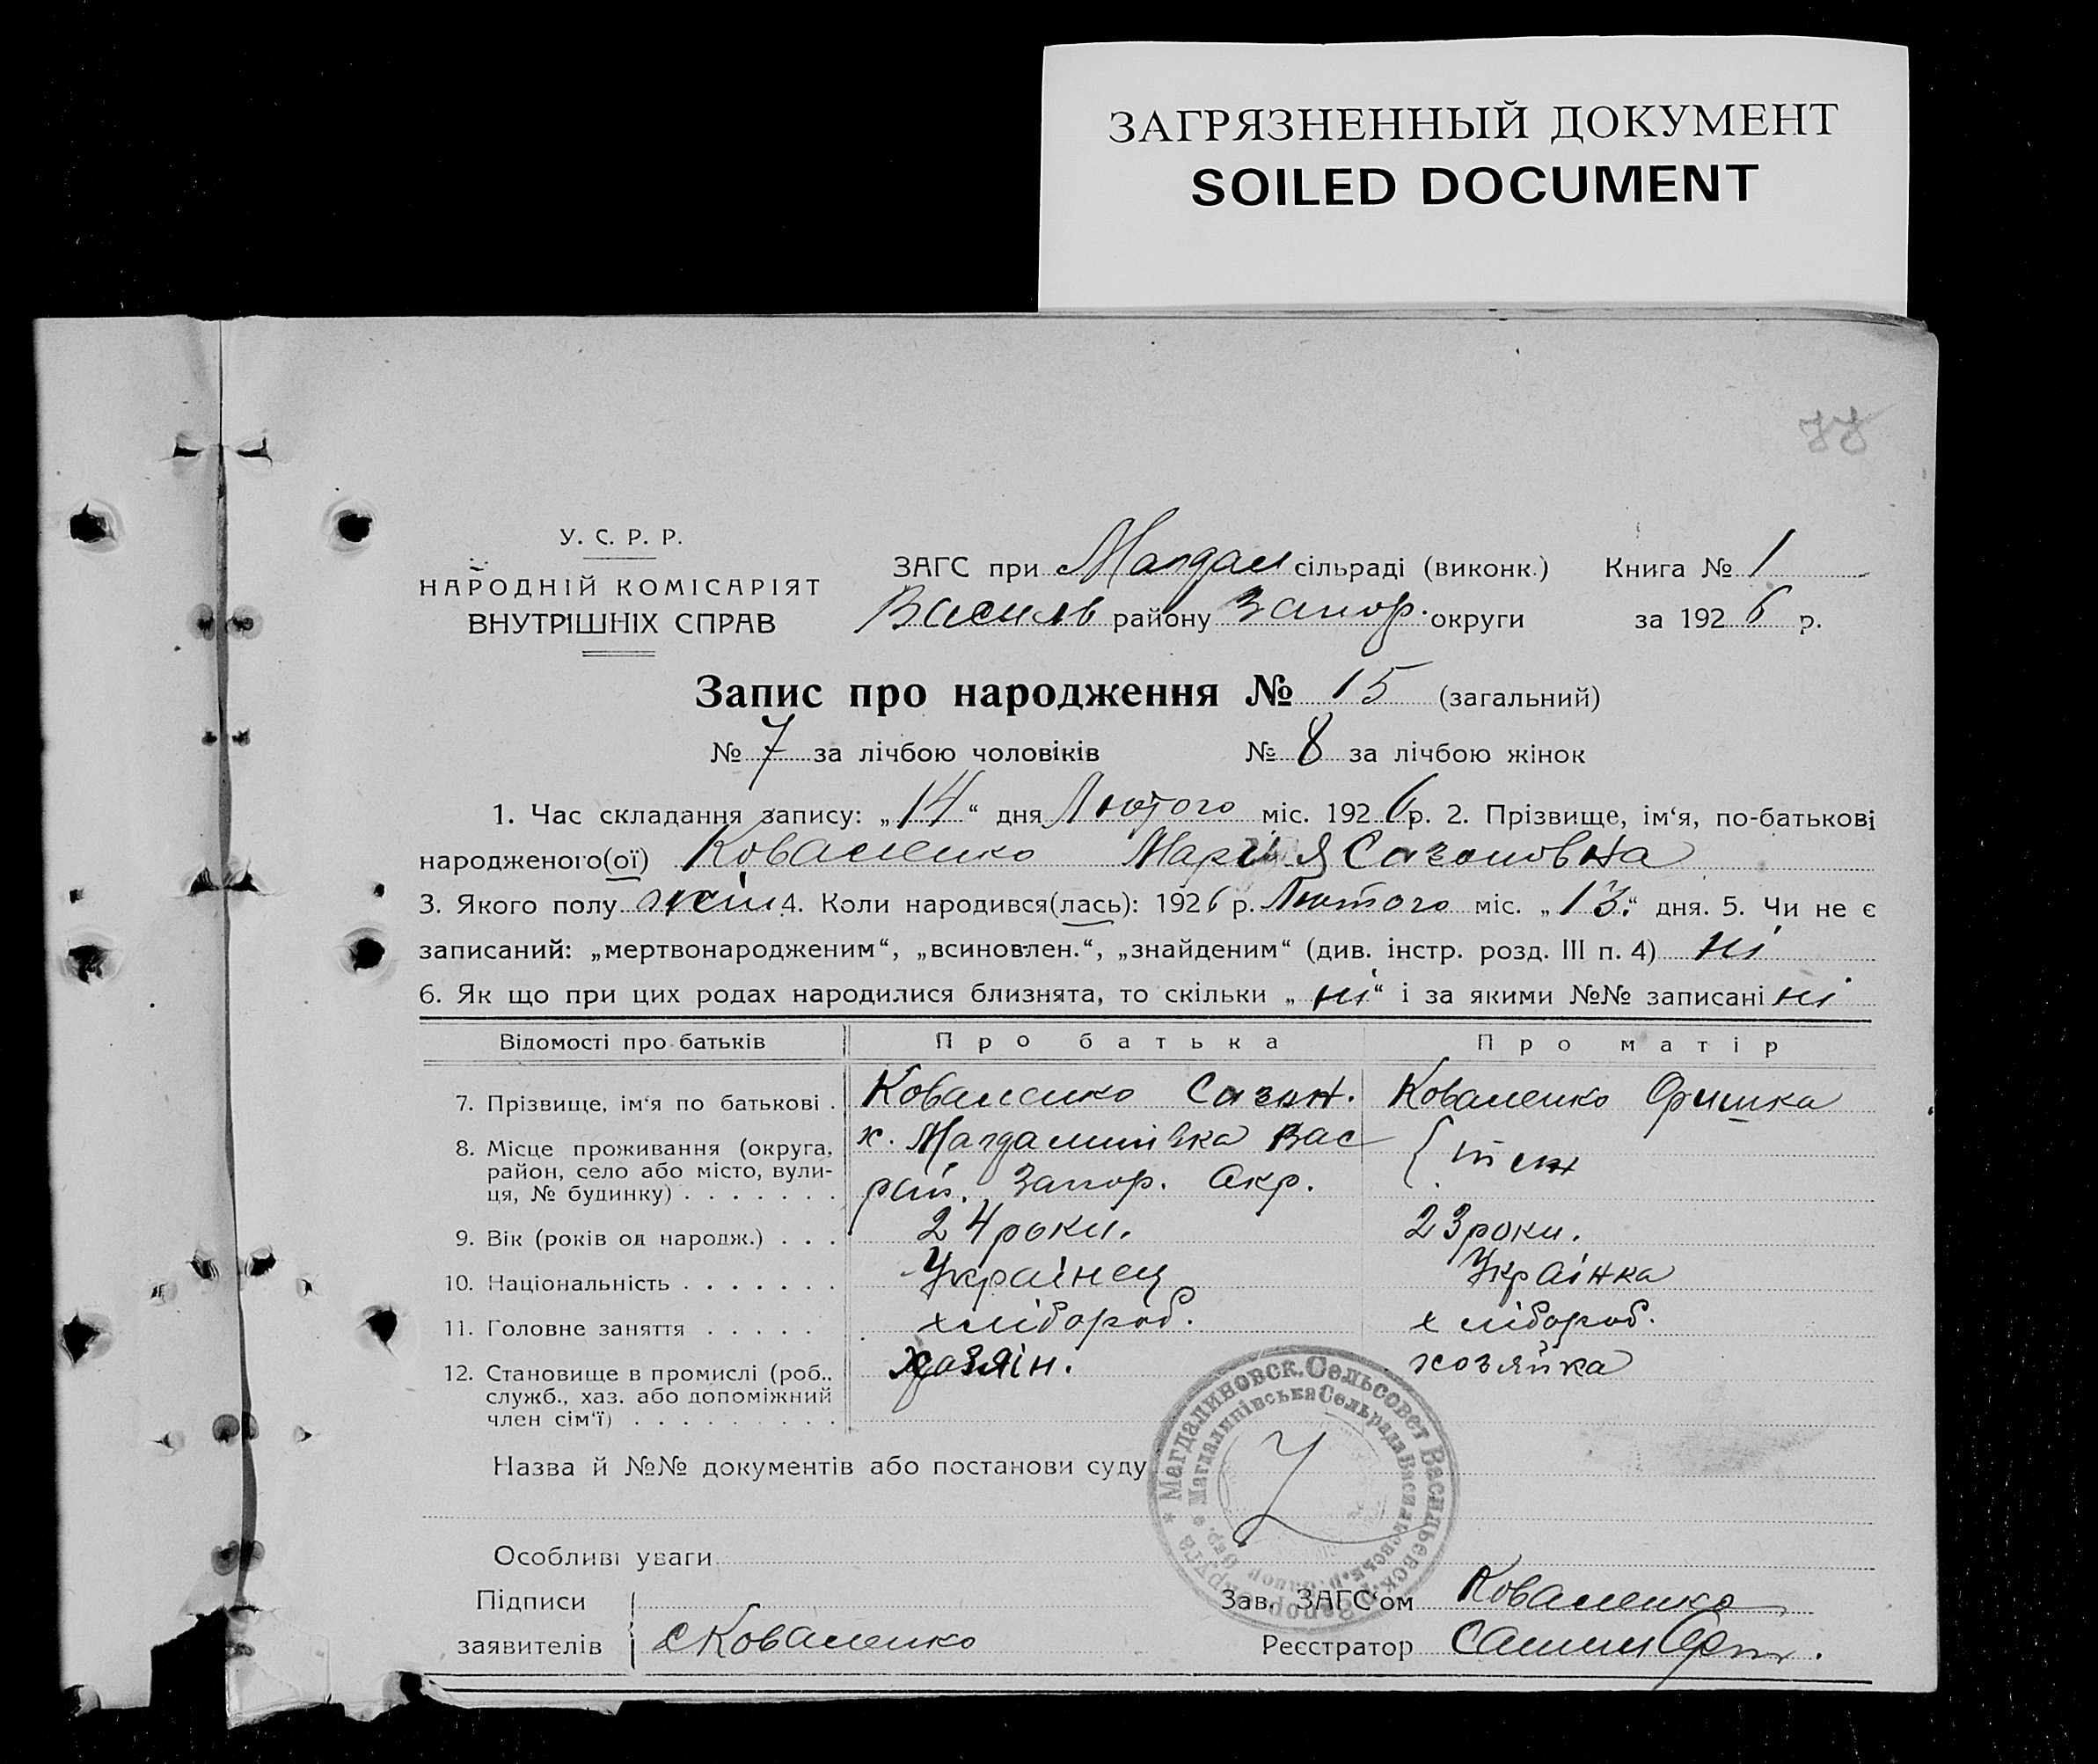 ЗАГРЯЗНЕННЫЙ ДОКУМЕНТ
SOILED DOCUMENT
У. С. Р. Р.
НАРОДНІЙ КОМІСАРІЯТ
ВНУТРІШНІХ СПРАВ
ЗАГС при Магдал сільраді (виконк.) Книга № 1
Василь району Запор. округи за 1926 р.
Запис про народження № 15 (загальний)
№ 7 за лічбою чоловіків № 8 за лічбою жінок
1. Час складання запису: „14“ дня Лютого міс. 1926 р. 2. Прізвище, ім‘я, по-батькові
народженого(ої) Коваленко Марія Сазоновна
3. Якого полу жін 4. Коли народився(лась): 1926 р. Лютого міс. „13“ дня. 5. Чи не є
записаний: „мертвонародженим“, „всиновлен.“, „знайденим“ (див. інстр. розд. III п. 4) ні
6. Як що при цих родах народилися близнята, то скільки „ні“ і за якими №№ записані ні
Відомості про батьків Про батька Про матір
7. Прізвище, ім‘я по батькові . Коваленко Сазон. Коваленко Оришка
8. Місце проживання (округа, район, село або місто, вулиця, № будинку) . . . . . . .
х. Магдалинівка Вас
рай. Запор. Окр.
теж
9. Вік (років од народж.) . . . 24 роки. 23 роки.
10. Національність . . . . . . . Українец Українка
11. Головне заняття . . . . . хлібороб. хлібороб.
12. Становище в промислі (роб.. служб., хаз. або допоміжний член сім‘ї) . . . . . . . . .
хозяїн. хозяйка
Магдалиновск. Сельсовет Васильевск. р. Запор. округа
Магдалинівська Сельрада Василівськ. р. Запор. Окр.
Назва й №№ документів або постанови суду
Особливі уваги
Підписи
заявителів С Коваленко
Зав. ЗАГС‘ом Коваленко
Реєстратор